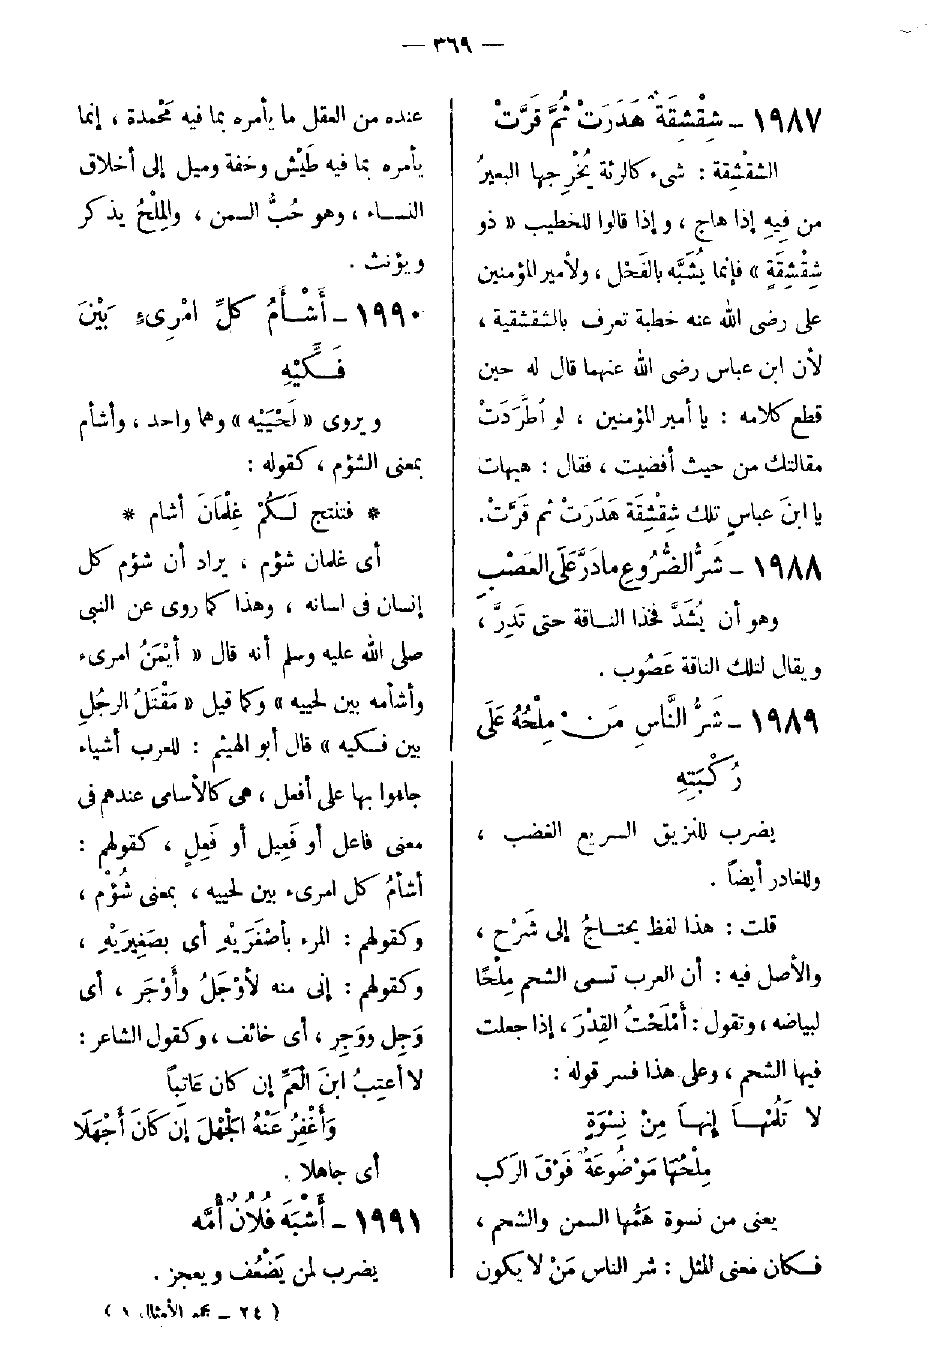 — ٣٦٩ —
١٩٨٧ – شِقْشِقَةٌ هَدَرَتْ ثُمَّ قَرَّتْ
الشقْشِقة : شىء كالرئة يُخْرِجها البعيرُ
من فِيهِ إذا هاج ، وإذا قالوا للخطيب « ذو
شِقْشِقَةٍ » فإنما يُشَبَّه بالفَحْل ، ولأمير المؤمنين
على رضى الله عنه خطبة تعرف بالشقشقية ،
لأن ابن عباس رضى الله عنهما قال له حين
قطع كلامه : يا أمير المؤمنين ، لو اُطَّرَدَتْ
مقالتك من حيث أفضيت ، فقال : هيهات
يا ابنَ عباسٍ تلك شِقْشِقَة هَدَرَتْ ثم قرَّتْ.
١٩٨٨ – شَرُّ الضُّرُوعِ مادَرَّ عَلَى العَصْبِ
وهو أن يُشَدَّ فخذا الناقة حتى تَدِرَّ ،
ويقال لتلك الناقة عَصُوب .
١٩٨٩ – شَرُّ النَّاسِ مَنْ مِلْحُهُ عَلَى
رُكْبَتِهِ
يضرب للنزِق السريع الغضب ،
وللغادر أيضاً .
قلت : هذا لفظ يحتاجُ إلى شَرْح ،
والأصل فيه : أن العرب تسمى الشحم مِلْحًا
لبياضه ، وتقول : أَمْلَحْتُ القِدْرَ ، إذا جعلت
فيها الشحم ، وعلى هذا فسر قوله :
لا تَلُمْهَا إنهاَ مِنْ نِسْوَةٍ
مِلْحُهَا مَوْضُوعَةٌ فَوْقَ الرَكب
يعنى من نسوة هَمُّها السمن والشحم ،
فكان معنى المثل : شر الناس مَنْ لا يكون
عنده من العقل ما يأمره بما فيه مَحْمدة ، إنما
يأمره بما فيه طَيْش وخفة وميل إلى أخلاق
النساء ، وهو حُبُّ السمن ، والمِلْحُ يذكر
ويؤنث .
١٩٩٠ – أَشْأَمُ كلِّ امْرِىءٍ بَيْنَ
فَكَّيْهِ
ويروى « لَحْيَيْه » وهما واحد ، وأشأم
بمعنى الشؤم ، كقوله :
* فتنتج لَكُمْ غِلْمَانَ أشام *
أى غلمان شؤم ، يراد أن شؤم كل
إنسان فى لسانه ، وهذا كما روى عن النبى
صلى الله عليه وسلم أنه قال « أيْمَنُ امرىء
وأشأمه بين لحييه » وكما قيل « مَقْتَلُ الرجُلِ
بين فكيه » قال أبو الهيثم : للعرب أشياء
جاءوا بها على أفعل ، هى كالأسامى عندهم فى
معنى فاعل أو فَعِيل أو فَعِلٍ ، كقولهم :
أشأمُ كل امرىء بين لحييه ، بمعنى شُؤْم ،
وكقولهم : المرء بأصْغَرَيْهِ أى بصَغِيرَيْهِ ،
وكقولهم : إنى منه لأوْجَلُ وأَوْجَر ، أى
وَجِل ووَجِر ، أى خائف ، وكقول الشاعر :
لا أعتِبُ ابنَ الْعَمِّ إن كان عَاتِباً
وَأَغْفِرُ عَنْهُ الْجَهْلَ إن كَانَ أَجْهَلَا
أى جاهلا .
١٩٩١ – أَشْبَهَ فُلَانٌ أُمَّه
يضرب لمن يَضْعُف ويعجز .
( ٢٤ – مجمع الأمثال ١ )